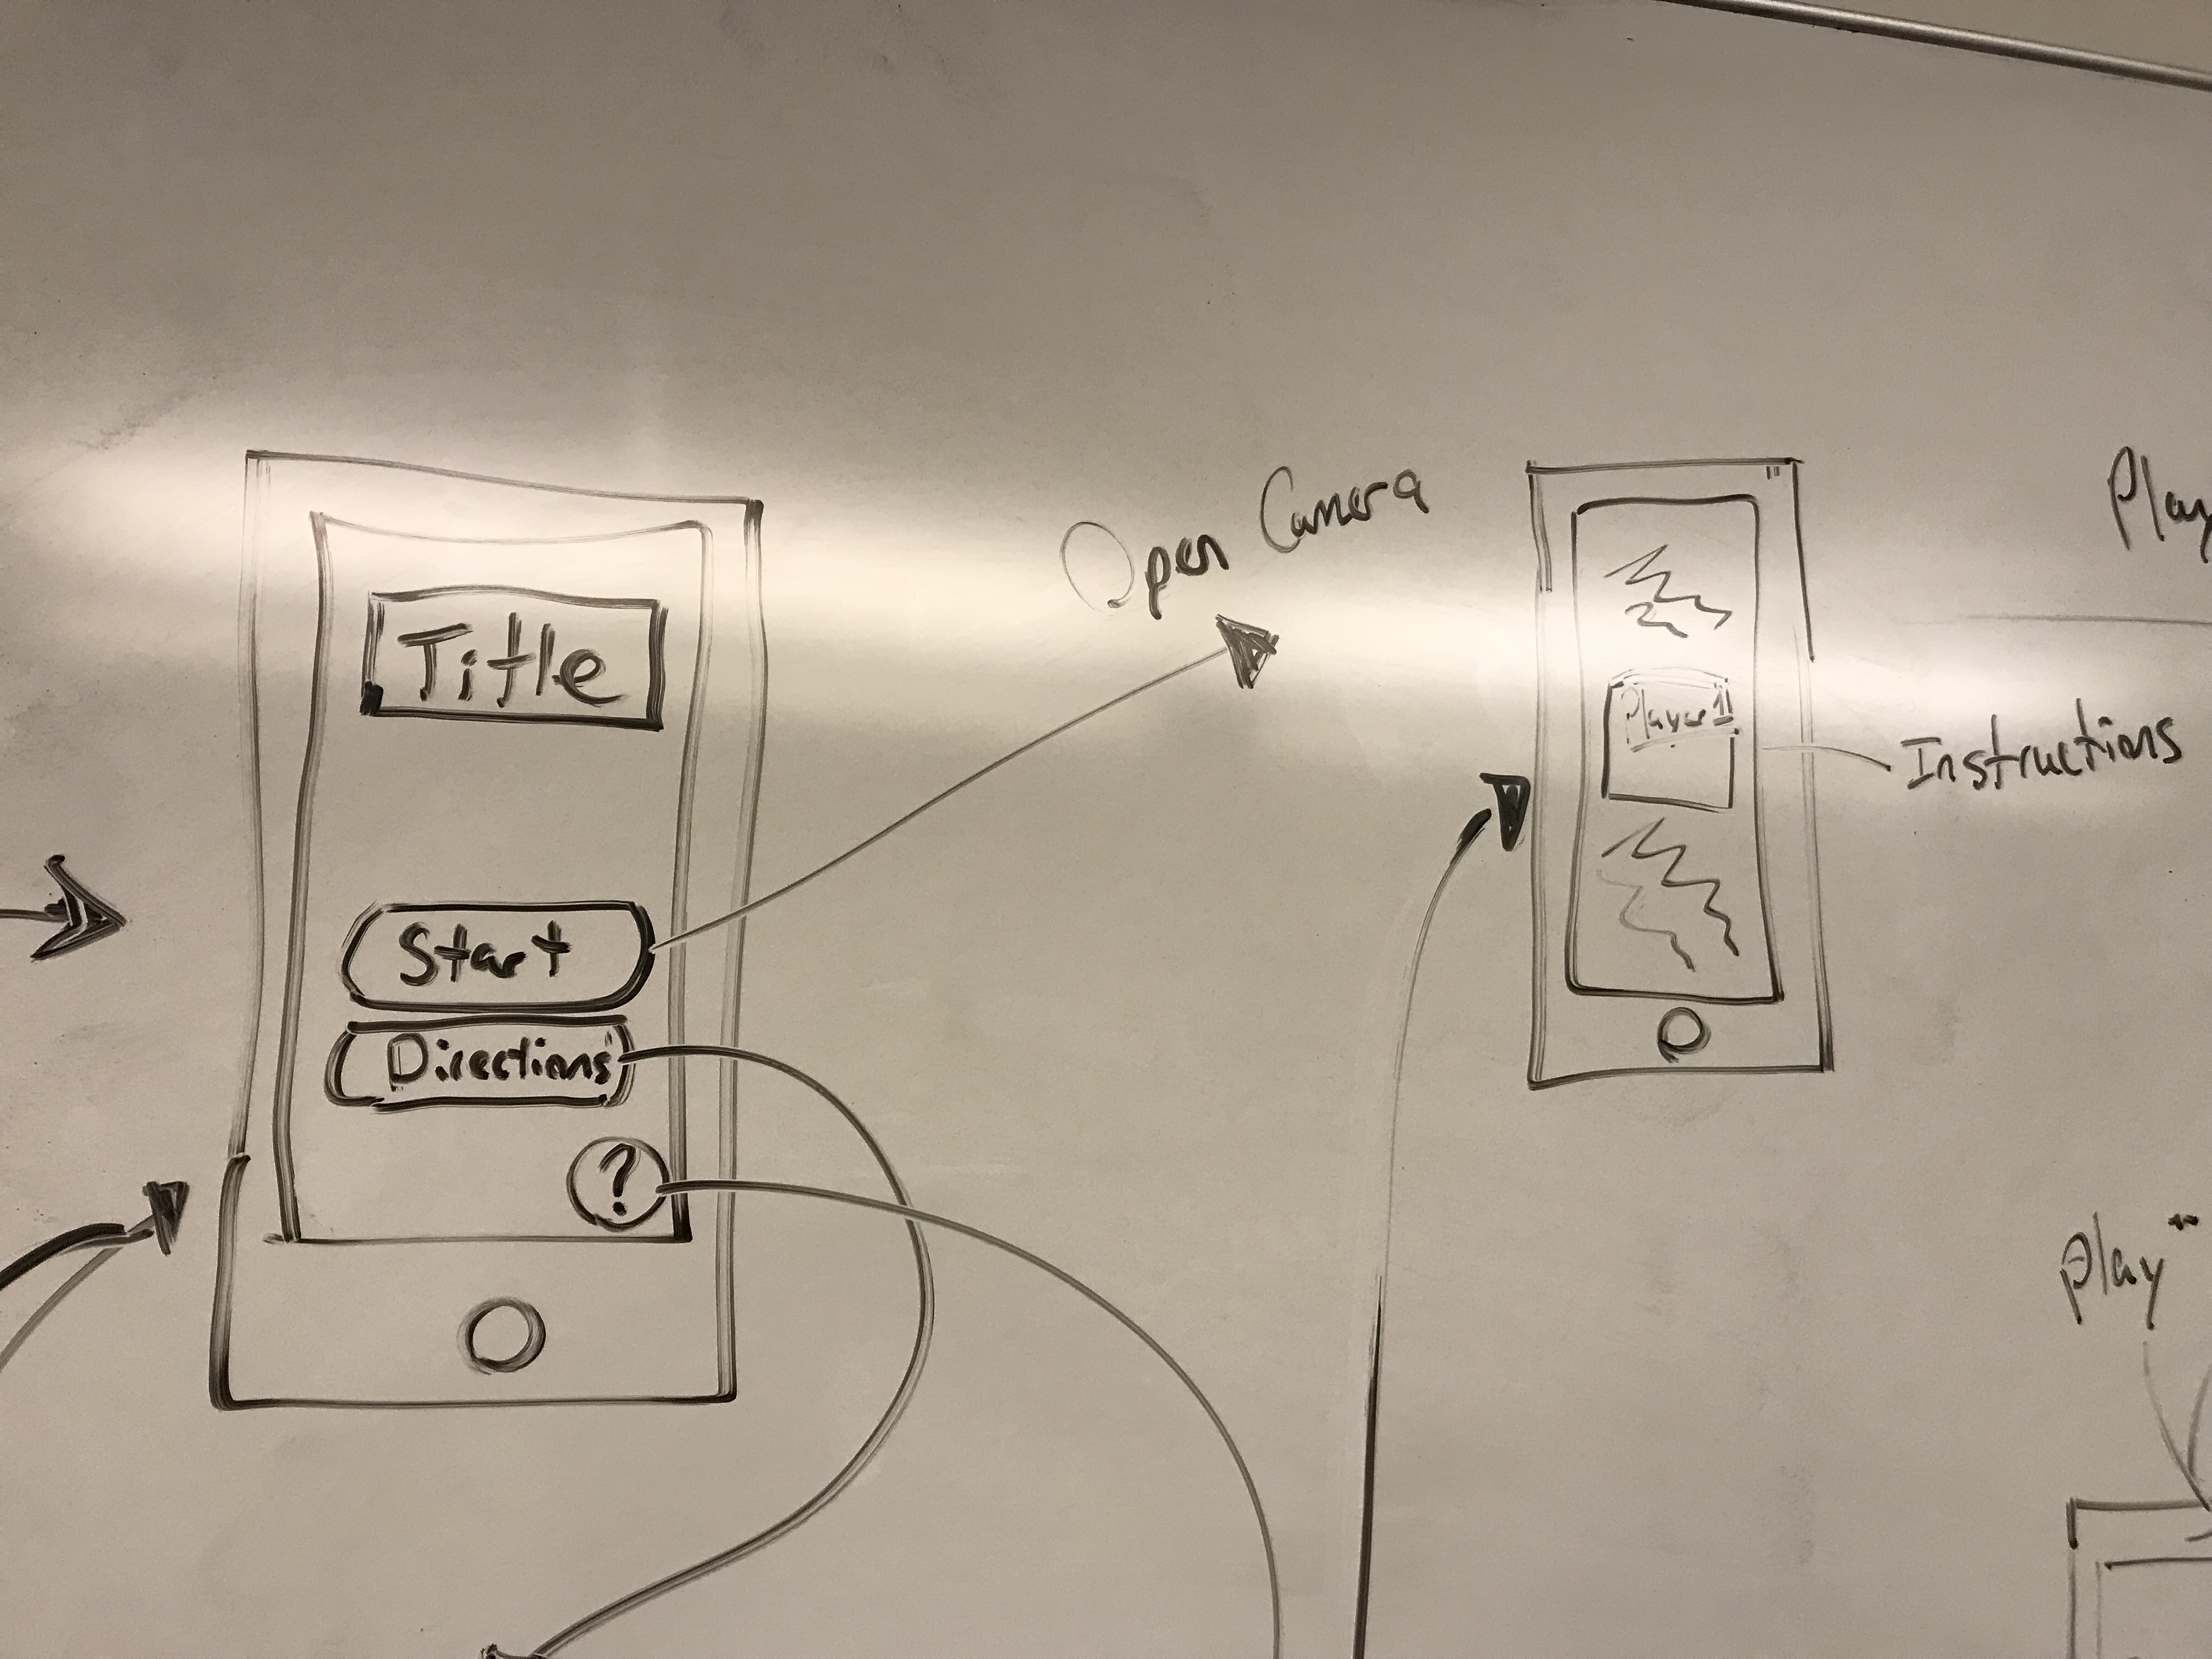 Title
Start
Directions
?
Open Camera
Player 1
Instructions
Play
Play